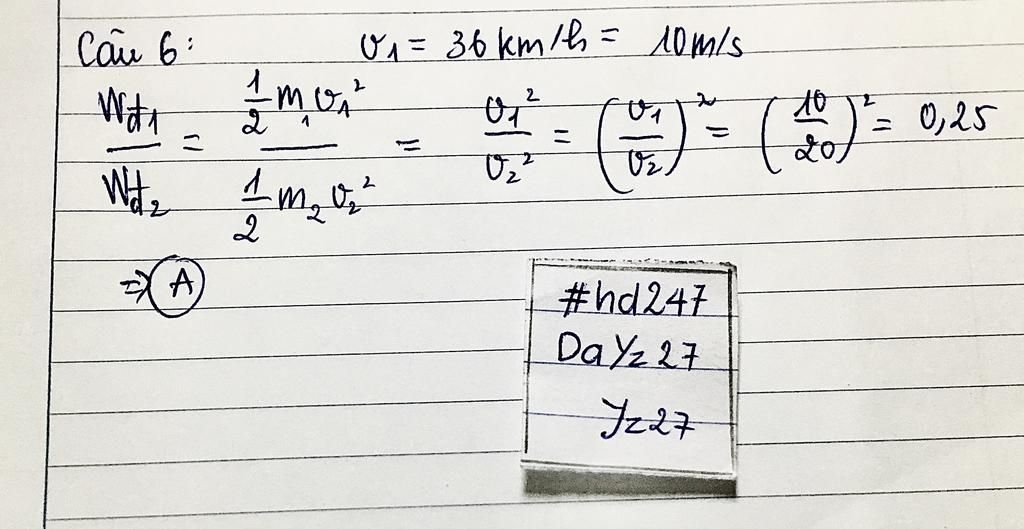 Câu 6: v₁ = 36 km/h = 10m/s
Wđ₁/Wđ₂ = (1/2 m₁v₁²)/(1/2 m₂v₂²) = v₁²/v₂² = (v₁/v₂)² = (10/20)² = 0,25
⇒ A
#hd247
DaYz27
Yz27